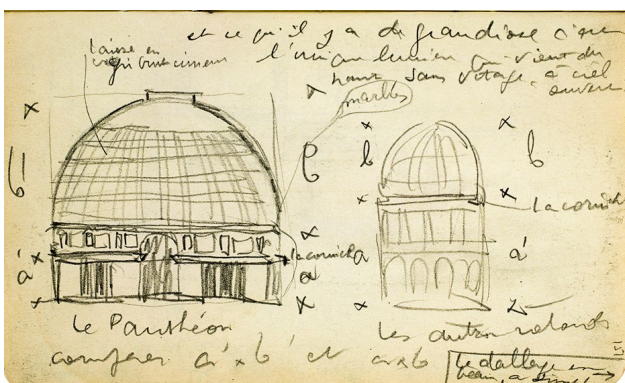 et ce qu'il y a de grandiose c'est
l'unique lumière qui vient du
haut sans vitage, à ciel
ouvert
laissé en
marbre
b
b
b
la corniche
la corniche
a'
a
a
a'
Le Panthéon
les autres rotondes
comparer a' x b' et a x b
le dallage en